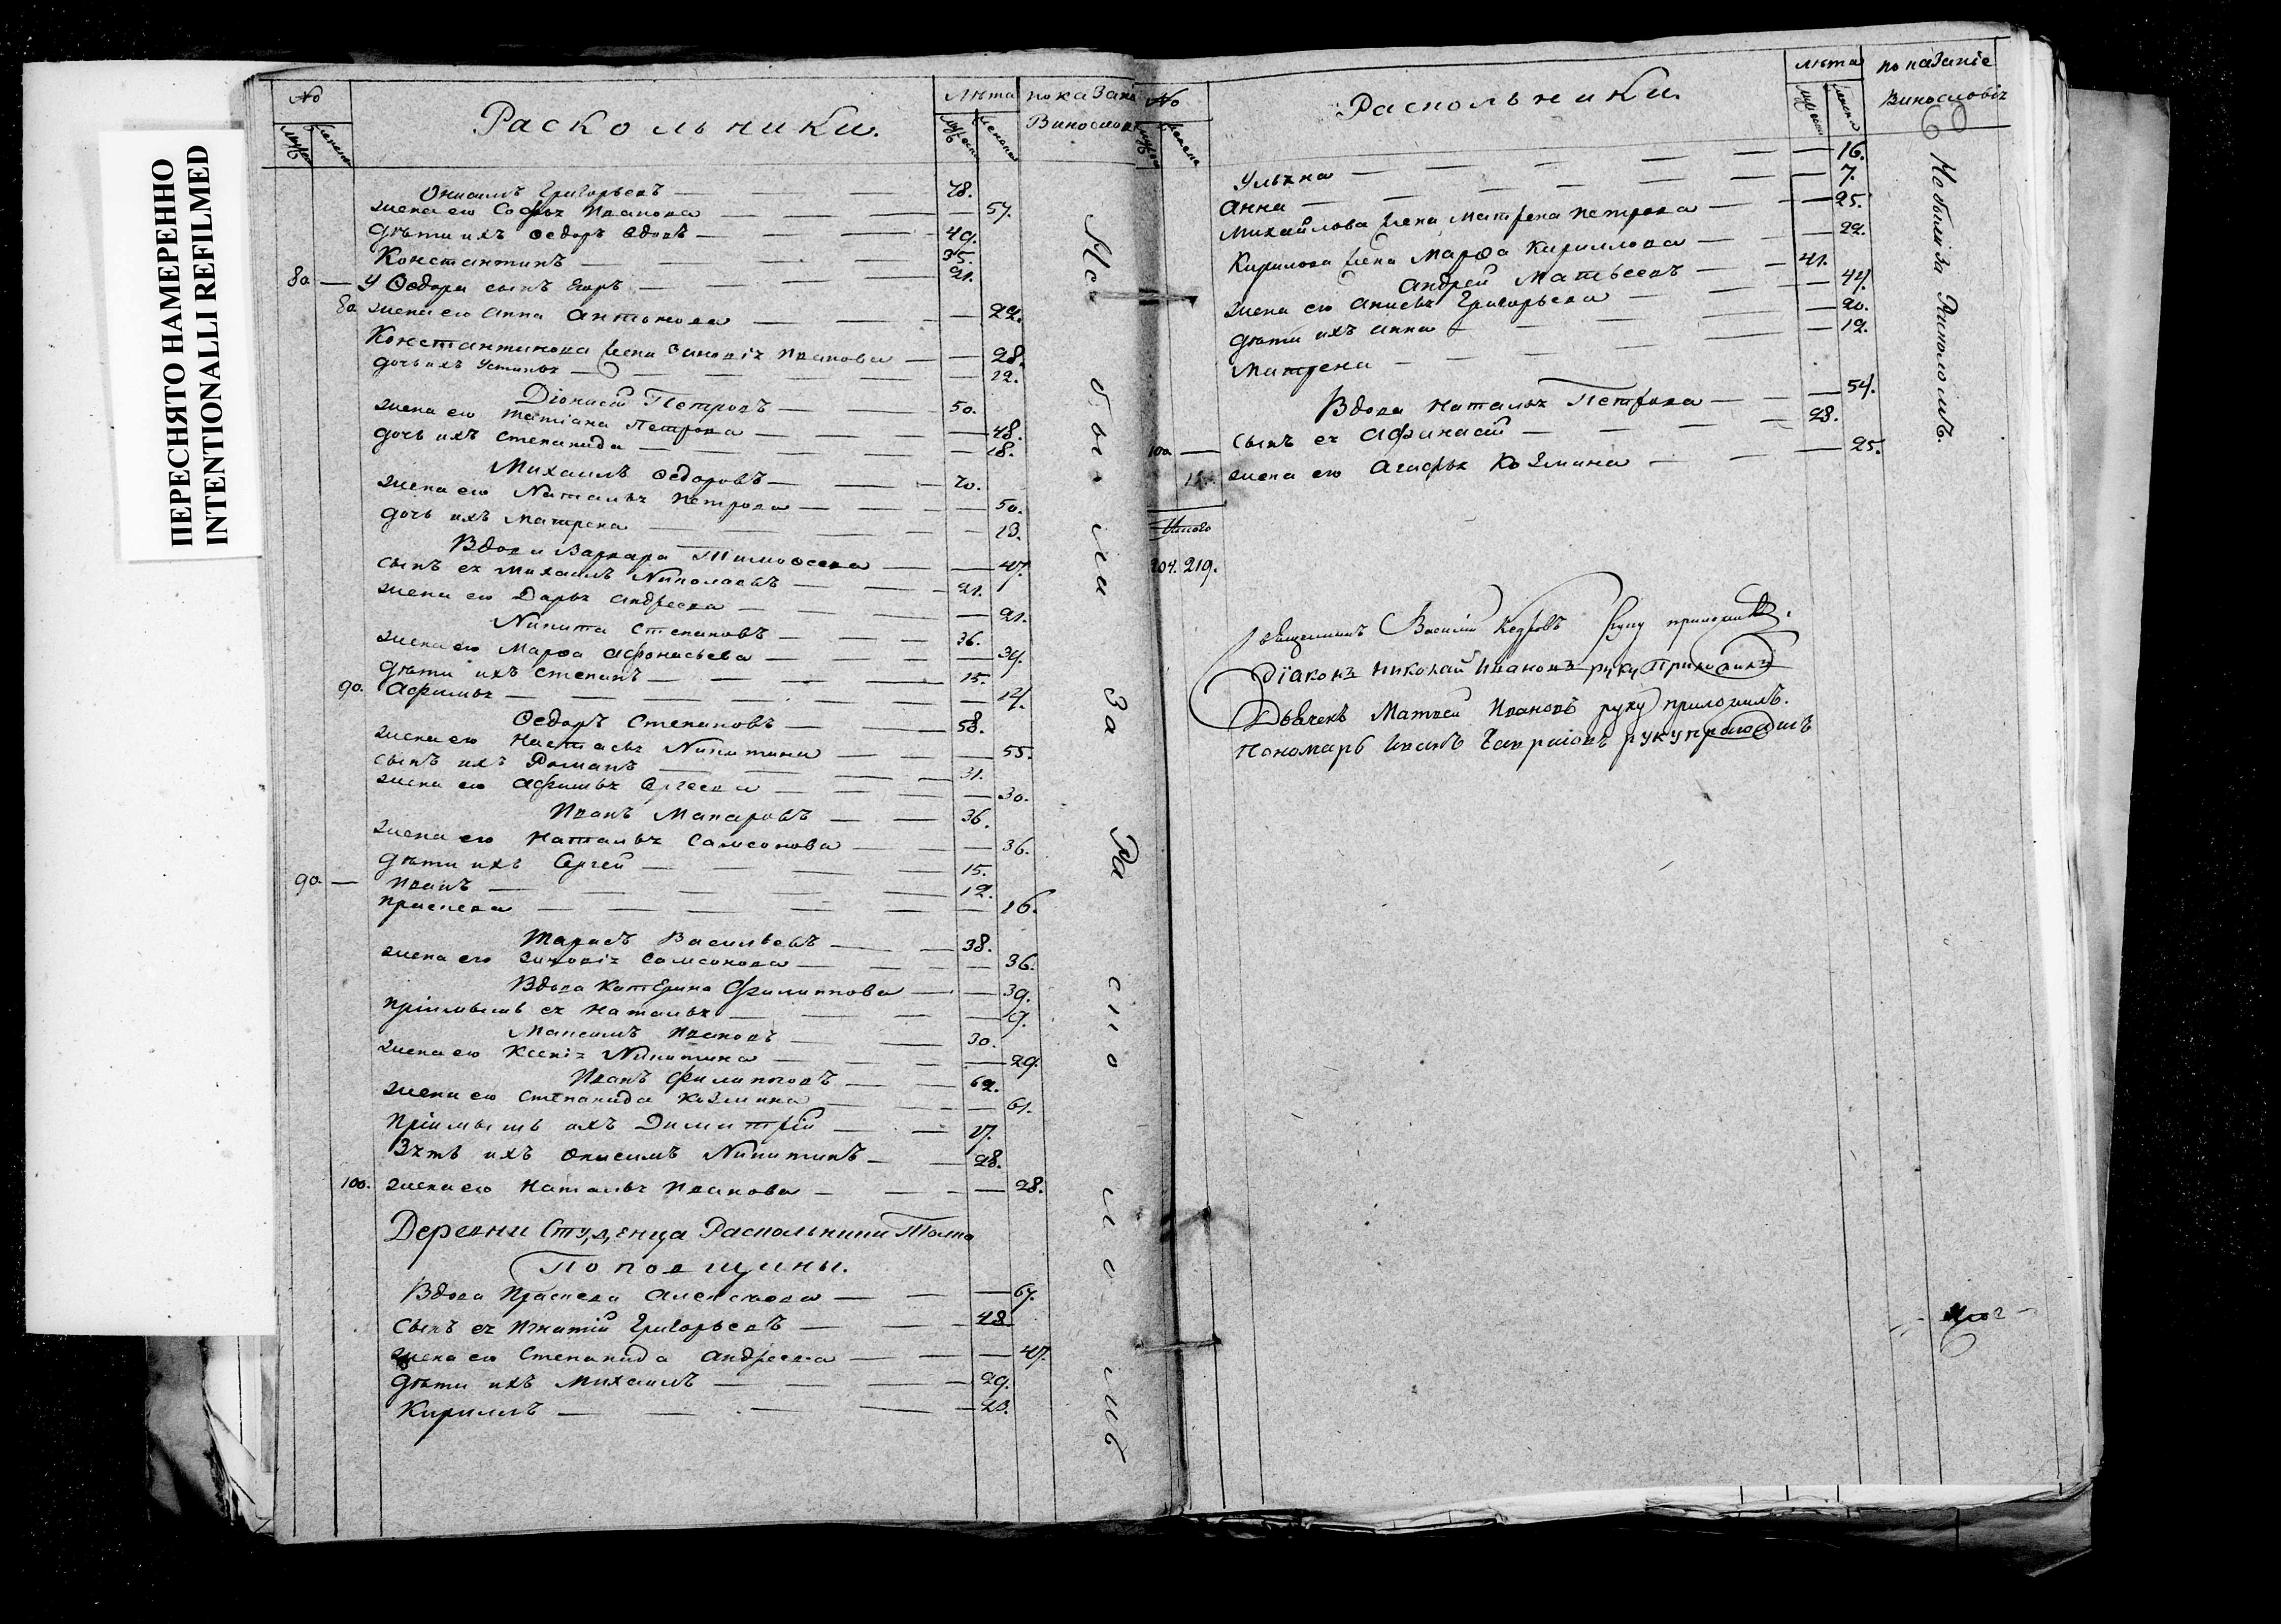 ПЕРЕСНЯТО НАМЕРЕННО
INTENTIONALLI REFILMED
No
Раскольники.
Лѣта
показани
Виносло
Онисимъ Григорьевъ 78.
жена его Софья Иванова 57.
дѣти ихъ Ѳедоръ вдовъ 49.
Константинъ 35.
80 У Ѳедора сынъ Егоръ 21.
80 жена его Анна Антонова 22.
Константинова жена Зиновія Иванова 28.
дочь ихъ Устинья 12.
Діонисій Петровъ 50.
жена его Татіана Петрова 48.
дочь ихъ Степанида 18.
Михаилъ Ѳедоровъ 70.
жена его Наталья Петрова 50.
дочь ихъ Матрена 13.
Вдова Варвара Тимоѳеева 47.
сынъ ея Михаилъ Николаевъ 21.
жена его Дарья Андреева 21.
Никита Степановъ 36.
жена его Марѳа Афонасьева 34.
дѣти ихъ Степанъ 15.
90. Афимья 14.
Ѳедоръ Степановъ 58.
жена его Настасья Никитина 55.
сынъ ихъ Романъ 31.
жена его Афимья Сергеева 30.
Иванъ Макаровъ 36.
жена его Наталья Самсонова 36.
дѣти ихъ Сергей 15.
90. Иванъ 12.
Праскева 16.
Тарасъ Васильевъ 38.
жена его Зиновія Самсонова 36.
Вдова Катерина Филиппова 39.
пріимышъ ея Наталья 9.
Максимъ Ивановъ 30.
жена его Ксенія Никитина 29.
Иванъ Филипповъ 62.
жена его Степанида Козмина 61.
Пріимышъ ихъ Димитрій 17.
Зять ихъ Онисимъ Никитинъ 28.
100. жена его Наталья Иванова 28.
Деревни Студенца Раскольники Толка
Поповщины.
Вдова Праскева Алексеева 67.
сынъ ея Игнатій Григорьевъ 48.
жена его Степанида Андреева 47.
дѣти ихъ Михаилъ 29.
Кириллъ 23.
Не были За Расколомъ
No
Раскольники.
Лѣта
показаніе
Винословія
Ульяна 16.
Анна 7.
Михайлова жена Матрена Петрова 25.
Кирилова жена Марѳа Кириллова 22.
Андрей Матвеевъ 41.
жена его Анисья Григорьева 44.
дѣти ихъ Анна 20.
Матрена 12.
Вдова Наталья Петрова 54.
100 сынъ ея Афанасій 28.
жена его Агафья Козмина 25.
Итого
204. 219.
Не были За Расколомъ.
Священникъ Василій Кедровъ руку приложилъ.
Діаконъ Николай Ивановъ руку приложилъ
Дьячекъ Матвей Ивановъ руку приложилъ.
Пономарь Иванъ Гавриловъ руку приложилъ